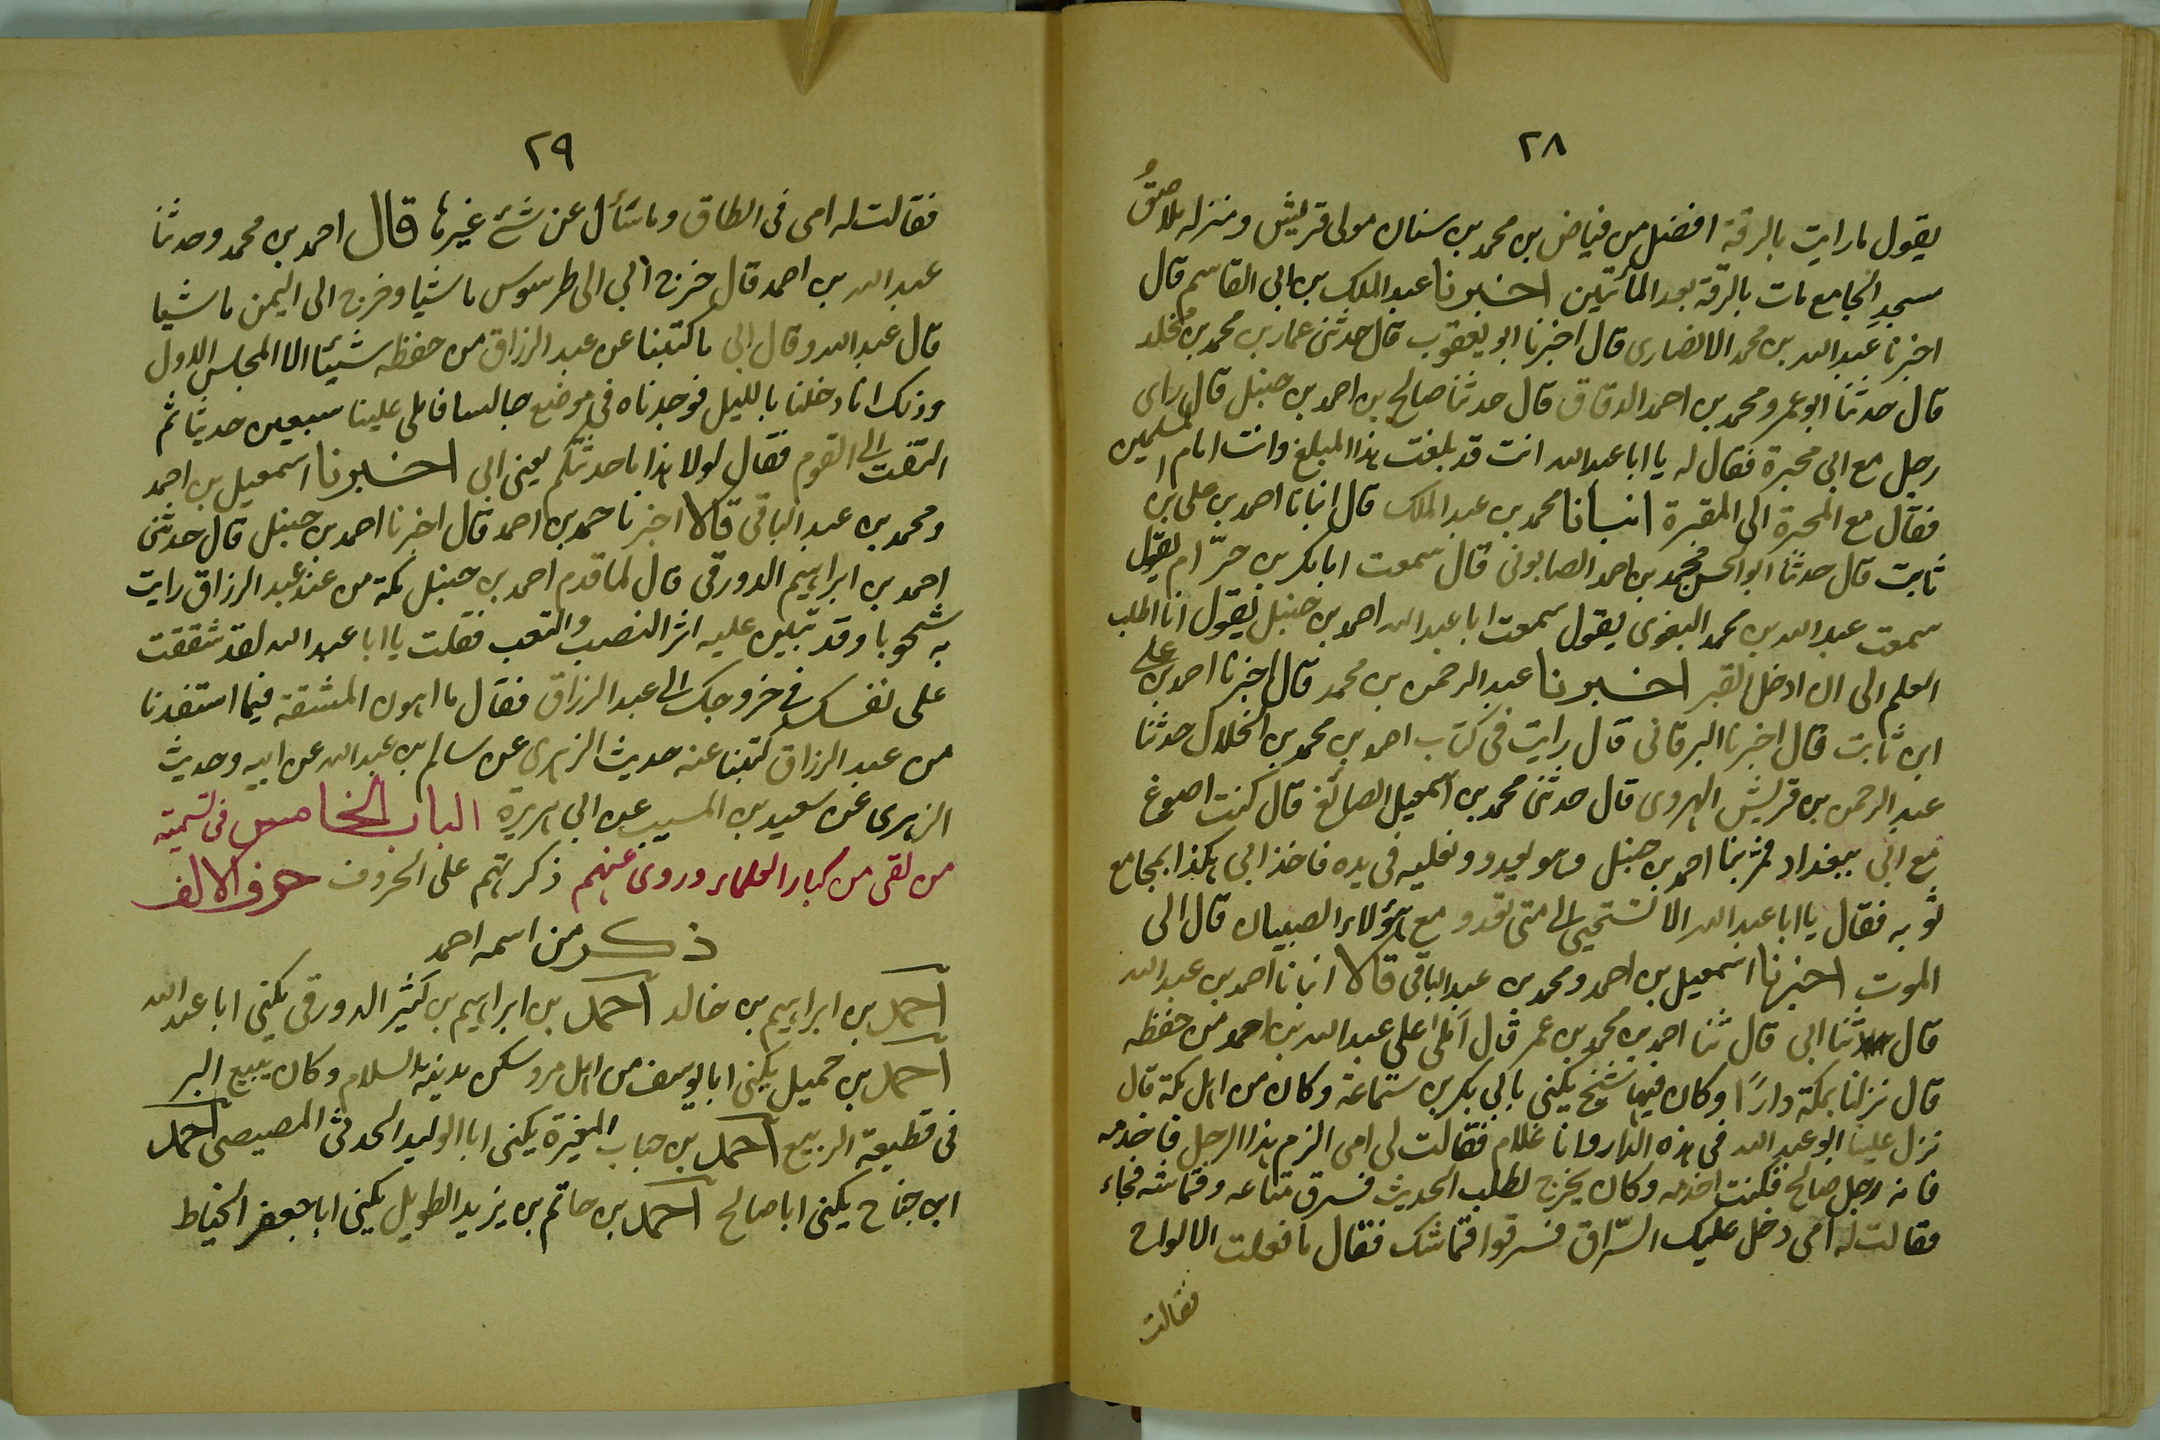 ٢٨
يقول مارايت بالرقة افضل من فياض بن محمد بن سنان مولى قريش ومنزله ملاصقُ
مسجد الجامع مات بالرقة بعد المأتين اخبرنا عبد الملك بن ابى القاسم قال
اخبرنا عبد الله بن محمد الانصارى قال اخبرنا ابو يعقوب قال حدثنى عمار بن محمد بن مخلد
قال حدثنا ابو عمر ومحمد بن احمد الدقاق قال حدثنا صالح بن احمد بن حنبل قال راى
رجل مع ابى محبرة فقال له يا ابا عبد الله انت قد بلغت هذا المبلغ وانت امام المسلمين
فقال مع المحبرة الى المقبرة انبانا محمد بن عبد الملك قال انبانا احمد بن على بن
ثابت قال حدثنا ابو الحسن محمد بن احمد الصابونى قال سمعت ابا بكر بن حرّ ام يقول
سمعت عبد الله بن محمد البغوى يقول سمعت ابا عبد الله احمد بن حنبل يقول انا اطلب
العلم الى ان ادخل القبر اخبرنا عبد الرحمن بن محمد قال اخبرنا احمد بن على
ابن ثابت قال اخبرنا البرقانى قال رايت فى كتاب احمد بن محمد بن الخلال حدثنا
عبد الرحمن بن قريش الهروى قال حدثنى محمد بن اسمعيل الصائغ قال كنت اصوغ
مع ابى ببغداد فمر بنا احمد بن حنبل وهو يعدو ونعليه فى يده فاخذ ابى هكذا بمجامع
ثوبه فقال يا ابا عبد الله الا تستحيى الى متى تعدو مع هؤلاء الصبيان قال الى
الموت اخبرنا اسمعيل بن احمد ومحمد بن عبد الباقى قالا انبانا احمد بن عبد الله
قال ثنا ابى قال ثنا احمد بن محمد بن عمر قال املى على عبد الله بن احمد من حفظه
قال نزلنا بمكة دارًا وكان فيها شيخ يكنى بابى بكر بن سماعة وكان من اهل مكة قال
نزل علينا ابو عبد الله فى هذه الدار وانا غلام فقالت لى امى الزم هذا الرجل فاخدمه
فانه رجل صالح فكنت اخدمه وكان يخرج لطلب الحديث فسرق متاعه وقماشه فجاء
فقالت له امى دخل عليك السّراق فسرقوا قماشك فقال ما فعلت الالواح
فقالت
٢٩
فقالت له امى فى الطاق وما سأل عن شئ غيرها قال احمد بن محمد وحدثنا
عبد الله بن احمد قال خرج ابى الى طرسوس ماشيا وخرج الى اليمن ماشيا
قال عبد الله وقال ابى ماكتبنا عن عبد الرزاق من حفظه شيئا الا المجلس الاول
وذلك انا دخلنا بالليل فوجدناه فى موضع جالسا فاملى علينا سبعين حديثا ثم
التفت الى القوم فقال لولا هذا ماحدثتكم يعنى ابى اخبرنا اسمعيل بن احمد
ومحمد بن عبد الباقى قالا اخبرنا حمد بن احمد قال اخبرنا احمد بن حنبل قال حدثنى
احمد بن ابراهيم الدورقى قال لما قدم احمد بن حنبل مكة من عند عبد الرزاق رايت
به شحوبا وقد تبين عليه اثر النصب والتعب فقلت يا ابا عبد الله لقد شققت
على نفسك فى خروجك الى عبد الرزاق فقال ما اهون المشقة فيما استفدنا
من عبد الرزاق كتبنا عنه حديث الزهرى عن سالم بن عبد الله عن ابيه وحديث
الزهرى عن سعيد بن المسيب عن ابى هريرة الباب الخامس فى تسمية
من لقى من كبار العلماء وروى عنهم ذكرتهم على الحروف حرف الالف
ذكر من اسمه احمد
احمد بن ابراهيم بن خالد احمد بن ابراهيم بن كثير الدورقى يكنى ابا عبد الله
احمد بن حميل يكنى ابا يوسف من اهل مرو سكن مدينة السلام وكان يبيع البر
فى قطيعة الربيع احمد بن جناب المغيرة يكنى ابا الوليد الحدثى المصيصى احمد
ابن جناح يكنى ابا صالح احمد بن حاتم بن يزيد الطويل يكنى ابا جعفر الخياط